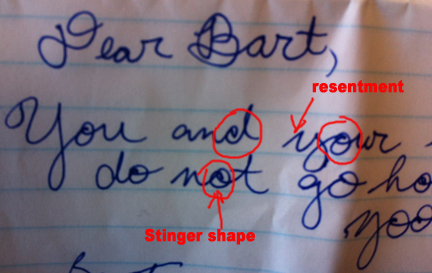 Dear Bart,
resentment
You and your
do not go ho
Stinger shape
yoo